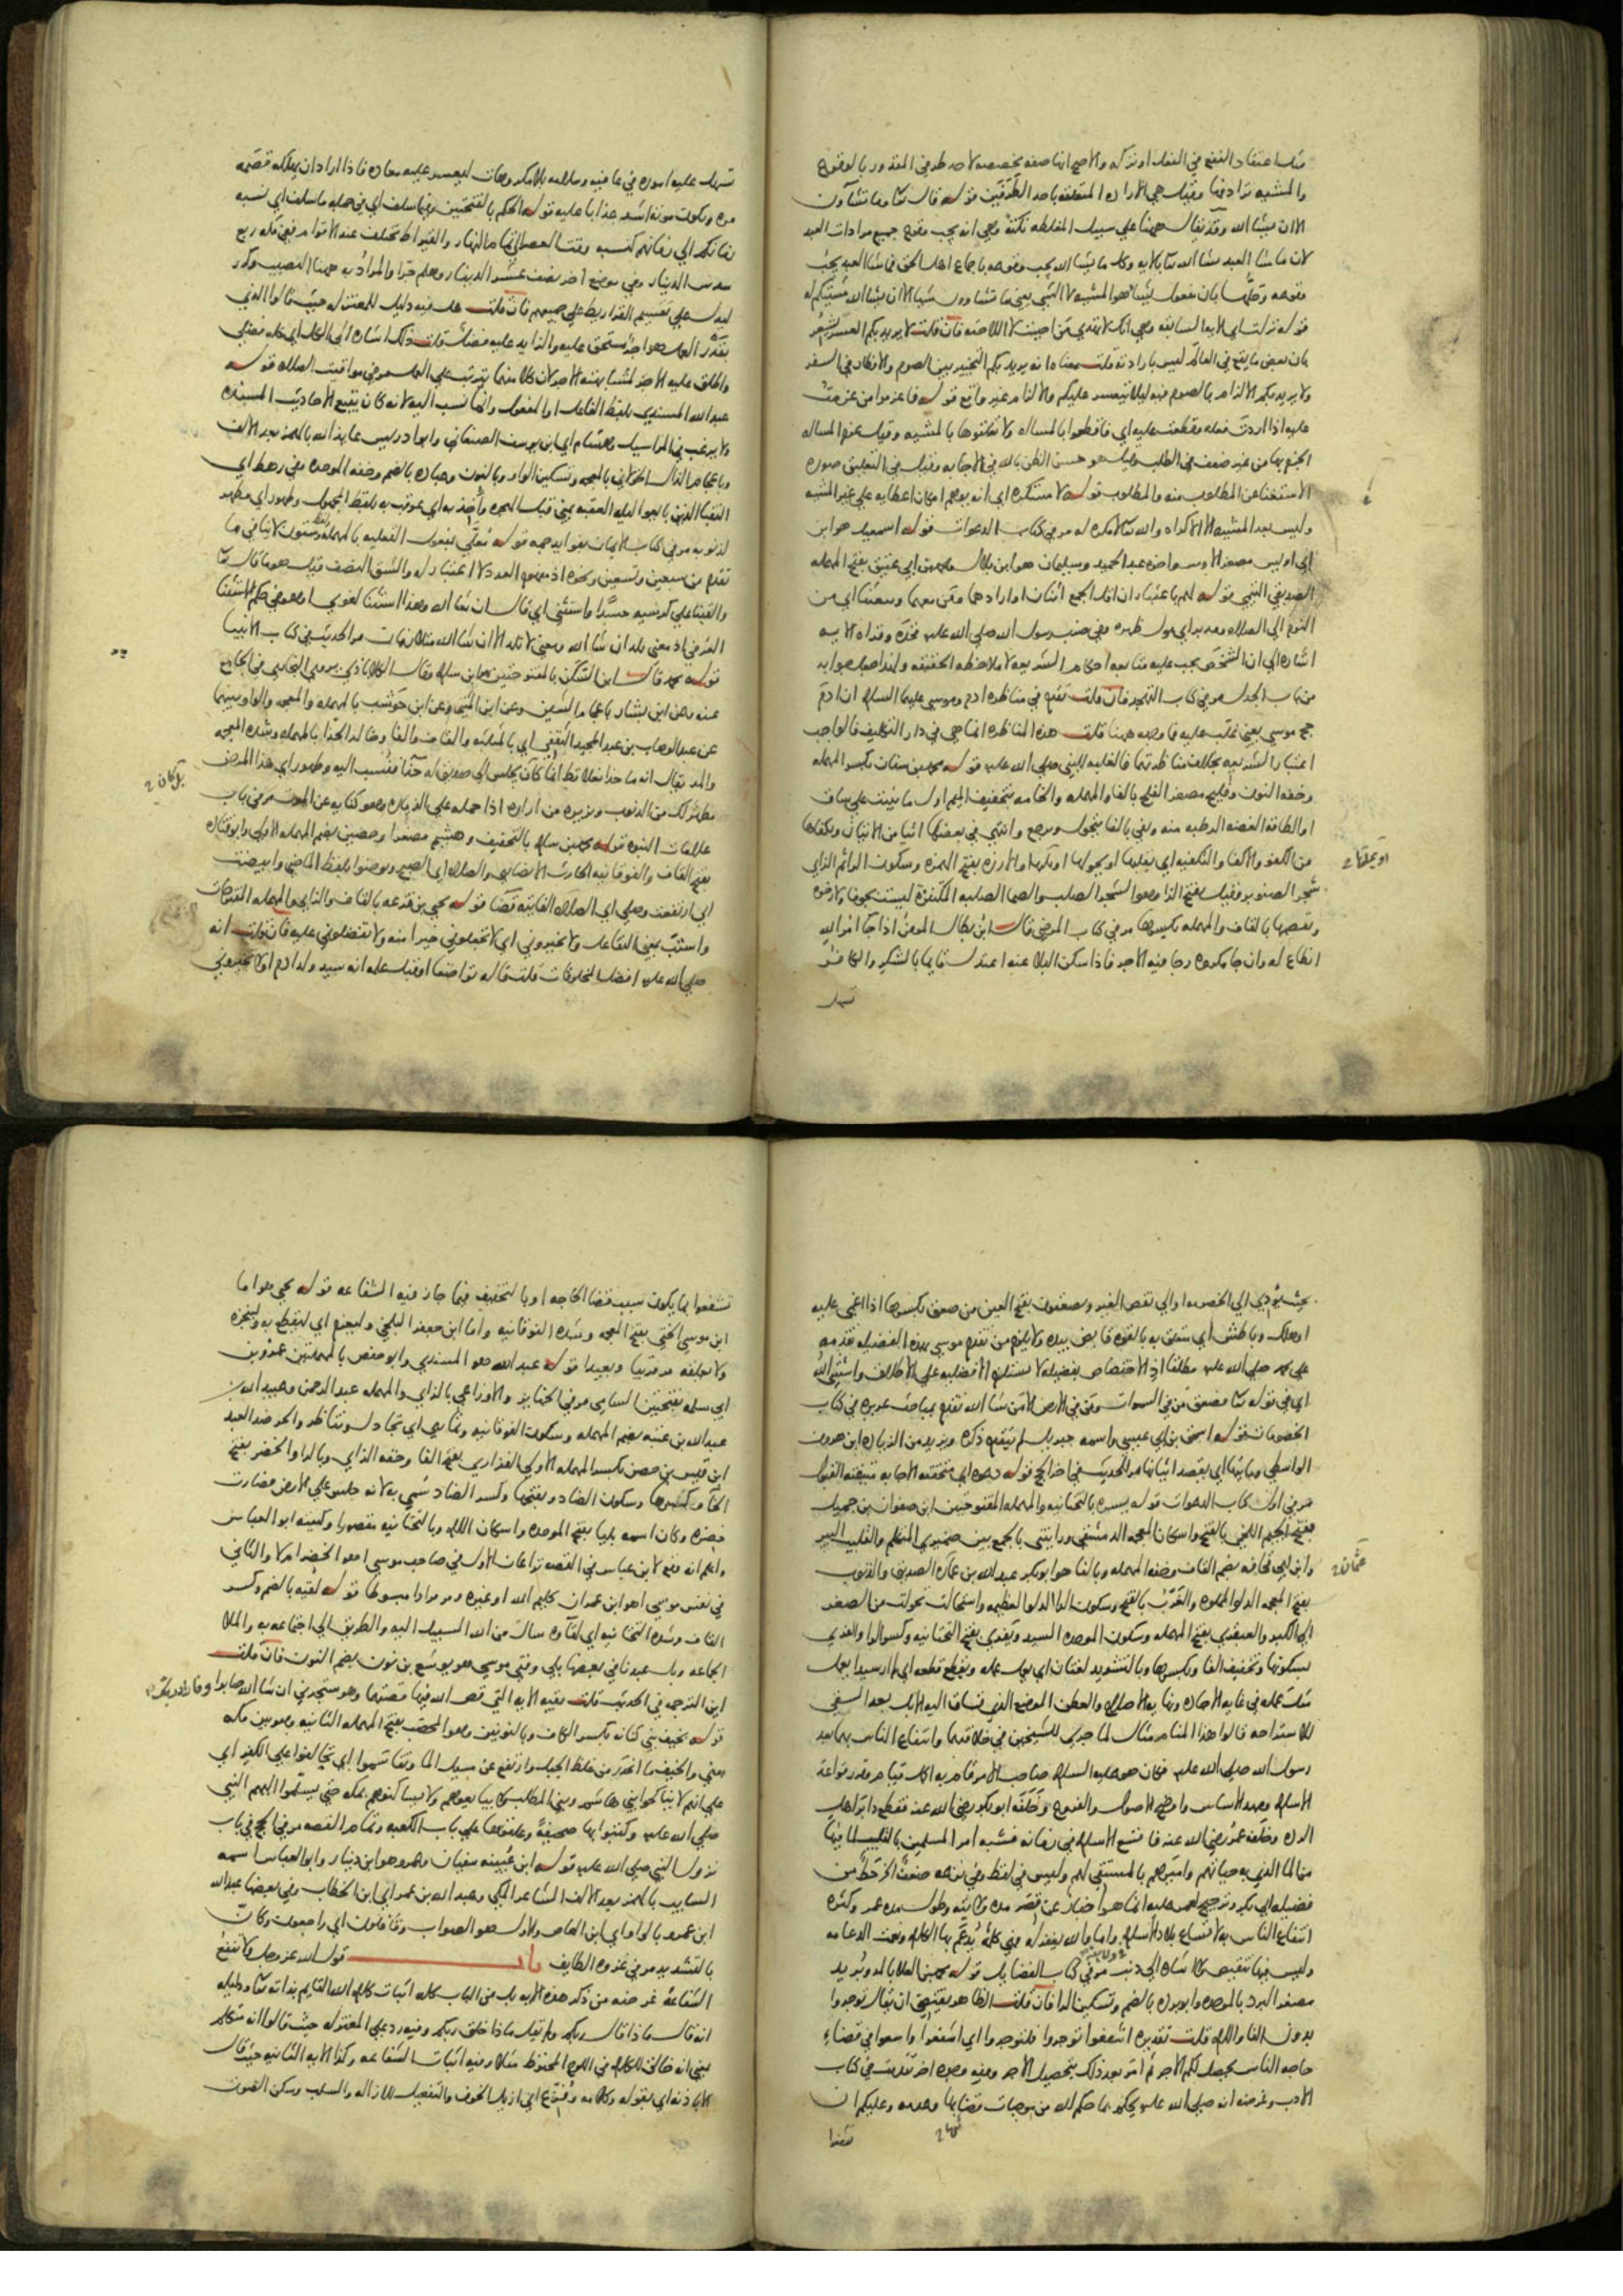 مثل اعتقاد النفع في الفعل او تركه والاصح انها صفة مخصصة لاحد طرفي المقدور بالوقوع
والمشيه ترادفها وقيل هي الاراده المتعلقه باحد الطرفين قوله قال تعالى وما تشاؤن
الا ان يشا الله وقد يقال ههنا علي سبيل المغلطه نكتة وهي انه يجب وقوع جميع مرادات العبد
لان ما شا العبد شا الله تعالى بالايه وكل ما يشا الله يجب وقوعه باجماع اهل الحق فما شا العبد يجب
وقوعه وحلها بان مفعول يشا هو المشيه لا الشي يعني ما تشاون شيا الا ان يشا الله مشيتكم له
قوله نزلت اي الايه السابقه وهي انك لا تهدي من احببت لا اللاحقه فان قلت لا يريد بكم العسر يشعر
بان بعض ما يقع في العالم ليس بارادته قلت معناه انه يريد بكم التخيير بين الصوم والافطار في السفر
ولا يريد بكم الالزام بالصوم فيه ليلا يتعسر عليكم والالزام غير واقع قوله فاعزموا من عزمت
عليه اذا اردت فعله وقطعت عليه اي فاقطعوا بالمساله ولا تعلقوها بالمشيه وقيل عزم المساله
الجزم بها من غير ضعف في الطلب وقيل هو حسن الظن بالله في الاجابه وقيل في التعليق صوره
الاستغنا عن المطلوب منه والمطلوب قوله لا مستكره اي انه يوهم امكان اعطايه علي غير المشيه
وليس بعد المشيه الا الاكراه والله تعالى لا مكره له مر في كتاب الدعوات قوله اسمعيل هو ابن
ابي اويس مصغر الاوس واخوه عبد الحميد وسليمان هو ابن بلال ومحمد بن ابي عتيق بفتح المهمله
الصديقي التيمي قوله لهم باعتبار ان اقل الجمع اثنان او ارادهما ومن معهما وبعثنا اي من
النوم الي الصلاه ومدبر اي مول ظهره وفي ضرب رسول الله صلي الله عليه فخذه وقراه الايه
اشاره الي ان الشخص يجب عليه متابعه احكام الشريعه لا ملاحظه الحقيقه ولهذا جعل جوابه
من باب الجدل مر في كتاب التهجد فان قلت تقدم في مناظره ادم وموسي عليهما السلام ان ادم
حج موسي يعني غلب عليه فما وجهه ههنا قلت هذه المناظره انما هي في دار التكليف فالواجب
اعتبار الشريعه بخلاف مناظرتهما فالغلبه للنبي صلي الله عليه قوله محمد بن سنان بكسر المهمله
وخفه النون وفليح مصغر الفلح بالفا والمهمله والخامه بتخفيف الميم اول ما ينبت علي ساق
او الطاقه الغضه الرطبه منه وتفي بالفا يتحول ويرجع وانتهي في بعضها اتتها من الاتيان وتكفاها
من الكفو والاكفا والتكفيه اي يقلبها او يحولها والارزه بفتح الهمزه وسكون الرا ثم الزاي
شجر الصنوبر وقيل بفتح الرا وهو الشجر الصلب والصما الصلبه المكتنزة ليست بجوفا ولا رخوه
ويقصمها بالقاف والمهمله يكسرها مر في كتاب المرضي قال ابن بطال المومن اذا جا امر الله
انطاع له وان جا مكروه رجا فيه الاجر فاذا سكن البلا عنه اعتدل قايما بالشكر والكافر
تسهل
تسهل عليه اموره في عافيه وسلامه بلا مكروهات ليعسر عليه معاده فاذا اراد ان يهلكه قصمه
مره ويكون موته اشد عذابا عليه قوله الحكم بالمفتوحتين وفيما سلف اي في جمله ما سلف اي نسبه
زمانكم الي زمانهم كنسبه وقت العصر الي تمام النهار والقيراط مختلف عند الاقوام ففي مكه ربع
سدس الدينار وفي موضع اخر نصف عشر الدينار وهلم جرا والمراد به ههنا النصيب وكرر
ليدل علي تقسيم القراريط علي جميعهم فان قلت هل فيه دليل للمعتزله حيث قالوا الذي
بقدر العمل هو اجر مستحق عليه والزايد عليه فضل قلت ذلك اشاره الي الكل اي كله فضلي
واطلق عليه الاجر لمشابهته الاجر لان كلا منهما يترتب علي العمل مر في مواقيت الصلاه قوله
عبد الله المسندي بلفظ الفاعل او المفعول وانما نسب اليه لانه كان يتبع الاحاديث المسنده
ولا يرغب في المراسيل وهشام اي ابن يوسف الصنعاني وابو ادريس عايذ الله بالهمز بعد الالف
وباعجام الذال الخولاني بالمعجمه وتسكين الواو وبالنون وعباده بالضم وخفه الموحده وفي رهط اي
النقبا الذين بايعوا ليله العقبه بمني قبل الهجره واخذ به اي عوقب به بلفظ المجهول وطهور اي مطهر
لذنوبه مر في كتاب الايمان بفوايد جمه قوله معلي بمفعول التعليه بالمهمله وستون لا ينافي ما
تقدم من سبعين وتسعين ونحوه اذ مفهوم العدد لا اعتبار له والشق النصف قيل هو ما قال تعالى
والقينا علي كرسيه جسدا واستثني اي قال ان شا الله وهذا استثنا لغوي او هو في حكم الاستثنا
العرفي اذ معني يلد ان شا الله ومعني لا تلد الا ان شا الله متلازمان مر الحديث في كتاب الانبيا
قوله محمد قال ابن السكن بالمفتوحتين هو ابن سلام وقال الكلاباذي يروي البخاري في الجامع
عنه وعن ابن بشار باعجام الشين وعن ابن المثني وعن ابن حوشب بالمهمله والمعجمه والواو بينهما
عن عبد الوهاب بن عبد المجيد الثقفي اي بالمثلثه والقاف والفا وخالد الحذا بالمهمله وشده المعجمه
والمد يقال انه ما حذا نعلا قط انما كان يجلس الي صديق له حذا فنسب اليه وطهور اي هذا المرض
مطهر لك من الذنوب وتزيره من ازاره اذا حمله علي الزياره وهو كنايه عن الموت مر في باب
علامات النبوه قوله محمد بن سلام بالتخفيف وهشيم مصغرا وحصين بضم المهمله الاولي وابو قتاده
بفتح القاف والفوقانيه الحارث الانصاري والصلاه اي الصبح وتوضوا بلفظ الماضي وابيضت
اي ارتفعت وصلي اي الصلاه الفايته قضا قوله يحيي بن قزعه بالقاف والزاي والمهمله المفتوحات
واستب يعني التفاعل ولا تخيروني اي لا تجعلوني خيرا منه ولا تفضلوني عليه فان قلت انه
صلي الله عليه افضل المخلوقات قلت قاله تواضعا او قبل علمه انه سيد ولد ادم او لا تخيروني
بحيث يؤدي الي الخصومه او الي نقص الغير ويصعقون بفتح العين من صعق بكسرها اذا اغمي عليه
او هلك وباطش اي متعلق به بالقوه قابض بيده ولا يلزم من تقدم موسي بهذه الفضيله تقدمه
علي محمد صلي الله عليه مطلقا اذ الاختصاص بفضيله لا يستلزم الافضليه علي الاطلاق واستثني الله
اي في قوله تعالى فصعق من في السموات ومن في الارض الا من شا الله تقدم بمباحث عديده في كتاب
الخصومات قوله اسحق بن ابي عيسي واسمه جبريل لم يتقدم ذكره ويزيد من الزياده ابن هرون
الواسطي وياتيها اي يقصد اتيانها مر الحديث في اخر الحج قوله دعوه اي متحققه الاجابه متيقنه القبول
مر في اول كتاب الدعوات قوله يسره بالتحتانيه والمهمله المفتوحتين ابن صفوان بن جميل
بفتح الجيم اللخمي بالفتح واسكان المعجمه الدمشقي ورايتني بالجمع بين ضميري المتكلم والقليب البير
وابن ابي قحافه بضم القاف وخفه المهمله وبالفا هو ابو بكر عبد الله بن عثمان الصديق والذنوب
بفتح المعجمه الدلو المملوه والغرب بالفتح وسكون الرا الدلو العظيمه واستحالت تحولت من الصغر
الي الكبر والعبقري بفتح المهمله وسكون الموحده السيد ويفري بفتح التحتانيه وكسر الرا والفري
بسكونها وتخفيف اليا وبكسرها وبالتشديد لغتان اي يعمل عمله ويقطع قطعه اي لم ار سيدا يعمل
مثل عمله في غايه الاجاده ونهايه الاصلاح والعطن الموضع الذي تساق اليه الابل بعد السقي
للاستراحه قالوا هذا المنام مثال لما جري للشيخين في خلافتهما وانتفاع الناس بهما بعد
رسول الله صلي الله عليه فكان هو عليه السلام صاحب الامر قام به اكمل قيام وقرر قواعد
الاسلام ومهد الاساس واوضح الاصول والفروع وخلفه ابو بكر رضي الله عنه فقطع دابر اهل
الرده وخلفه عمر رضي الله عنه فاتسع الاسلام في زمانه فشبه امر المسلمين بالقليب لما فيها
من الما الذي به حياتهم واميرهم بالمستقي لهم وليس في لفظ وفي نزعه ضعف الخ حط من
فضيله ابي بكر وترجيح لعمر عليه انما هو اخبار عن قصر مده ولايته وطول مده عمر وكثره
انتفاع الناس به لاتساع بلاد الاسلام واما والله يغفر له فهي كلمه يدعم بها الكلام ونعمت الدعامه
وليس فيها تنقيص ولا اشاره الي ذنب مر في كتاب الفضايل قوله محمد بن العلا بالمد وبريد
مصغر البرد بالموحده وابو برده بالضم وتسكين الرا فان قلت الظاهر يقتضي ان يقال توجروا
بدون الفا واللام قلت تقديره اشفعوا توجروا فلتوجروا اي اشفعوا واسعوا في قضاء
حاجه الناس يحصل لكم الاجر ثم امر بعد ذلك بتحصيل الاجر وفيه وجوه اخر تقدمت في كتاب
الادب وغرضه انه صلي الله عليه يحكم بما حكم الله من موجبات قضايها وعدمه وعليكم ان
تشفعوا
تشفعوا بما يكون سبب قضا الحاجه او بالتخفيف فيما جاز فيه الشفاعه قوله يحيي هو اما
ابن موسي الختي بفتح المعجمه وشده الفوقانيه واما ابن جعفر البلخي وليعزم اي ليقطع به ولينجزه
ولا يعلقه قوله عبد الله هو المسندي وابو حفص بالمهملتين عمرو بن
ابي سلمه بفتحتين السامي مر في الجنايز والاوزاعي بالزاي والمهمله عبد الرحمن وعبيد الله بن
عبد الله بن عتبه بضم المهمله وسكون الفوقانيه وتماري اي تجادل وتناظر والحر ضد العبد
ابن قيس بن حصن بكسر المهمله الاولي الفزاري بفتح الفا وخفه الزاي وبالرا والخضر بفتح
الخا وكسرها وسكون الضاد وبفتحها وكسر الضاد سمي به لانه جلس علي الارض فصارت
خضره وكان اسمه بليا بفتح الموحده واسكان اللام وبالتحتانيه مقصورا وكنيته ابو العباس
واعلم انه وقع لابن عباس في القصه نزاعان الاول في صاحب موسي اهو الخضر ام لا والثاني
في نفس موسي اهو ابن عمران كليم الله او غيره ومر مرارا مبسوطا قوله لقيه بالضم وكسر
القاف وشده التحتانيه اي لقاؤه سال من الله السبيل اليه والطريق الي اجتماعه به والملا
الجماعه وبل عبدنا في بعضها بلي وفتي موسي هو يوشع بن نون بضم النون فان قلت
اين الترجمه في الحديث قلت بقيه الايه التي قص الله فيها قصتهما وهو ستجدني ان شا الله صابرا
قوله بخيف بني كنانه بكسر الكاف وبالنونين وهو المحصب بفتح المهمله الثانيه وهو بين مكه
ومني والخيف ما انحدر من غلظ الجبل وارتفع عن مسيل الما وتقاسموا اي تحالفوا علي الكفر اي
علي انهم لا يناكحوا بني هاشم وبني المطلب ولا يبايعوهم ولا يساكنوهم بمكه حتي يسلموا اليهم النبي
صلي الله عليه وكتبوا بها صحيفة وعلقوها علي باب الكعبه وتمام القصه مر في الحج في باب
نزول النبي صلي الله عليه قوله ابن عيينه سفيان وعمرو هو ابن دينار وابو العباس اسمه
السايب بالهمز بعد الالف الشاعر المكي وعبد الله بن عمر اي ابن الخطاب وفي بعضها عبد الله
ابن عمرو بالواو اي ابن العاص والاول هو الصواب وقافلون اي راجعون وكان
بالتشديد مر في غزوه الطايف باب قول الله عز وجل ولا تنفع
الشفاعة غرضه من ذكر هذه الايه بل من الباب كله اثبات كلام الله القايم بذاته تعالى ودليله
انه قال ماذا قال ربكم ولم يقل ماذا خلق ربكم وفيه رد علي المعتزله حيث قالوا انه متكلم
بمعني انه خالق للكلام في اللوح المحفوظ مثلا وفيه اثبات الشفاعه وكذا الايه الثانيه حيث قال
الا باذنه اي بقوله وكلامه وفزع اي ازيل الخوف والتفعيل للازاله والسلب وسكن الصوت